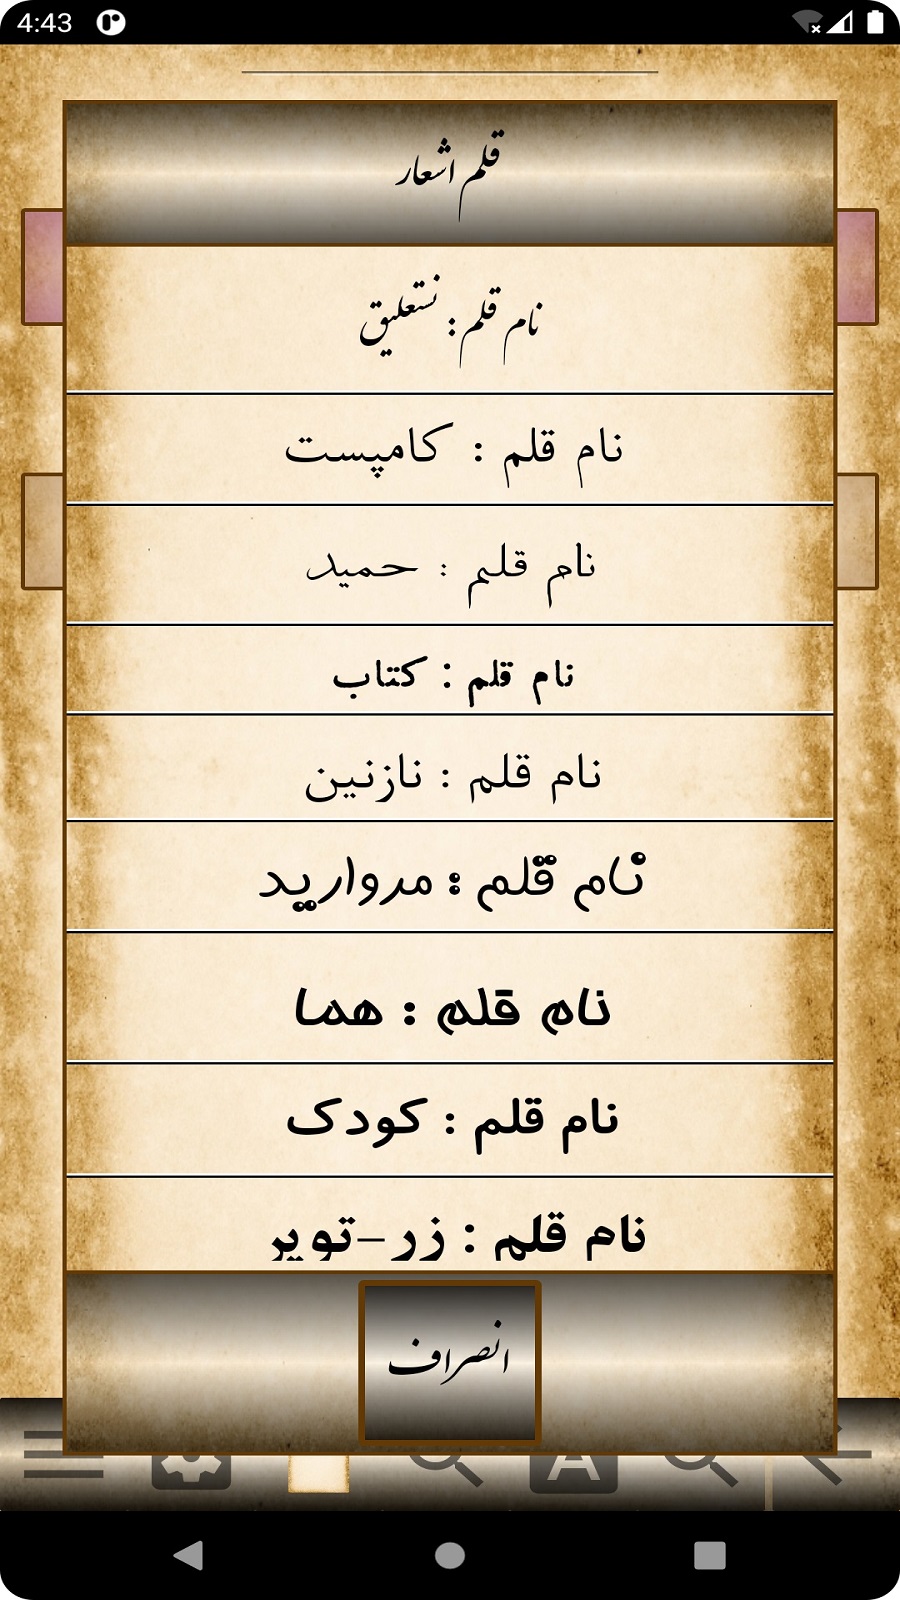 4:43
قلم اشعار
نام قلم : نستعلیق
نام قلم : کامپست
نام قلم : حمید
نام قلم : کتاب
نام قلم : نازنین
نام قلم : مروارید
نام قلم : هما
نام قلم : کودک
نام قلم : زر-تویر
انصراف
A